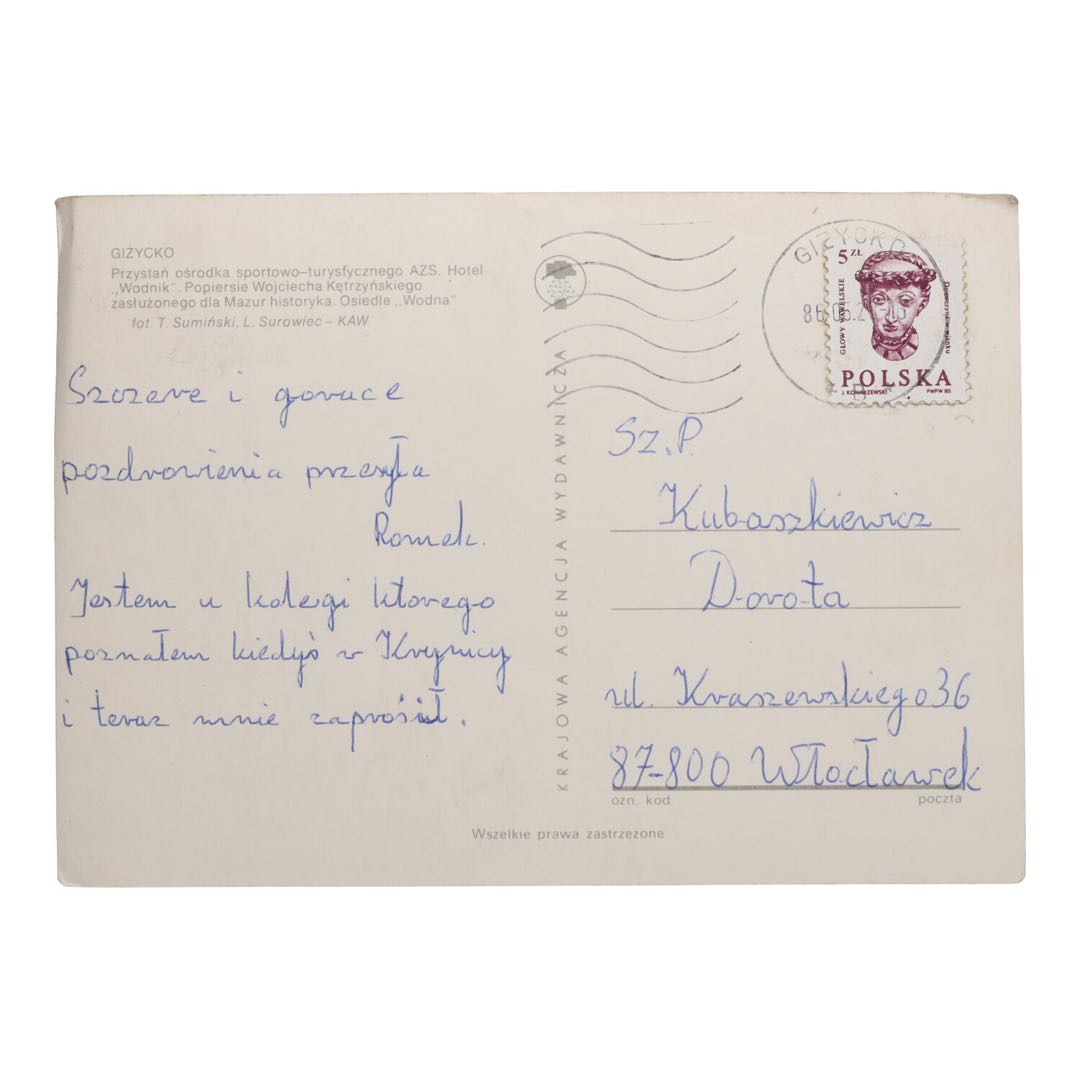 GIŻYCKO
Przystań ośrodka sportowo–turystycznego AZS. Hotel
„Wodnik". Popiersie Wojciecha Kętrzyńskiego
zasłużonego dla Mazur historyka. Osiedle „Wodna"
fot. T. Sumiński, L. Surowiec – KAW
Szczere i gorące
pozdrowienia przesyła
Romek.
Jestem u kolegi którego
poznałem kiedyś w Krynicy
i teraz mnie zaprosił.
KRAJOWA AGENCJA WYDAWNICZA
GIŻYCKO
86.05.2
B
5 ZŁ
GŁOWY WAWELSKIE
POLSKA
J. KONARZEWSKI PWPW 85.
Sz.P.
Kubaszkiewicz
Dorota
ul. Kraszewskiego 36
87-800 Włocławek
ozn. kod. poczta
Wszelkie prawa zastrzeżone